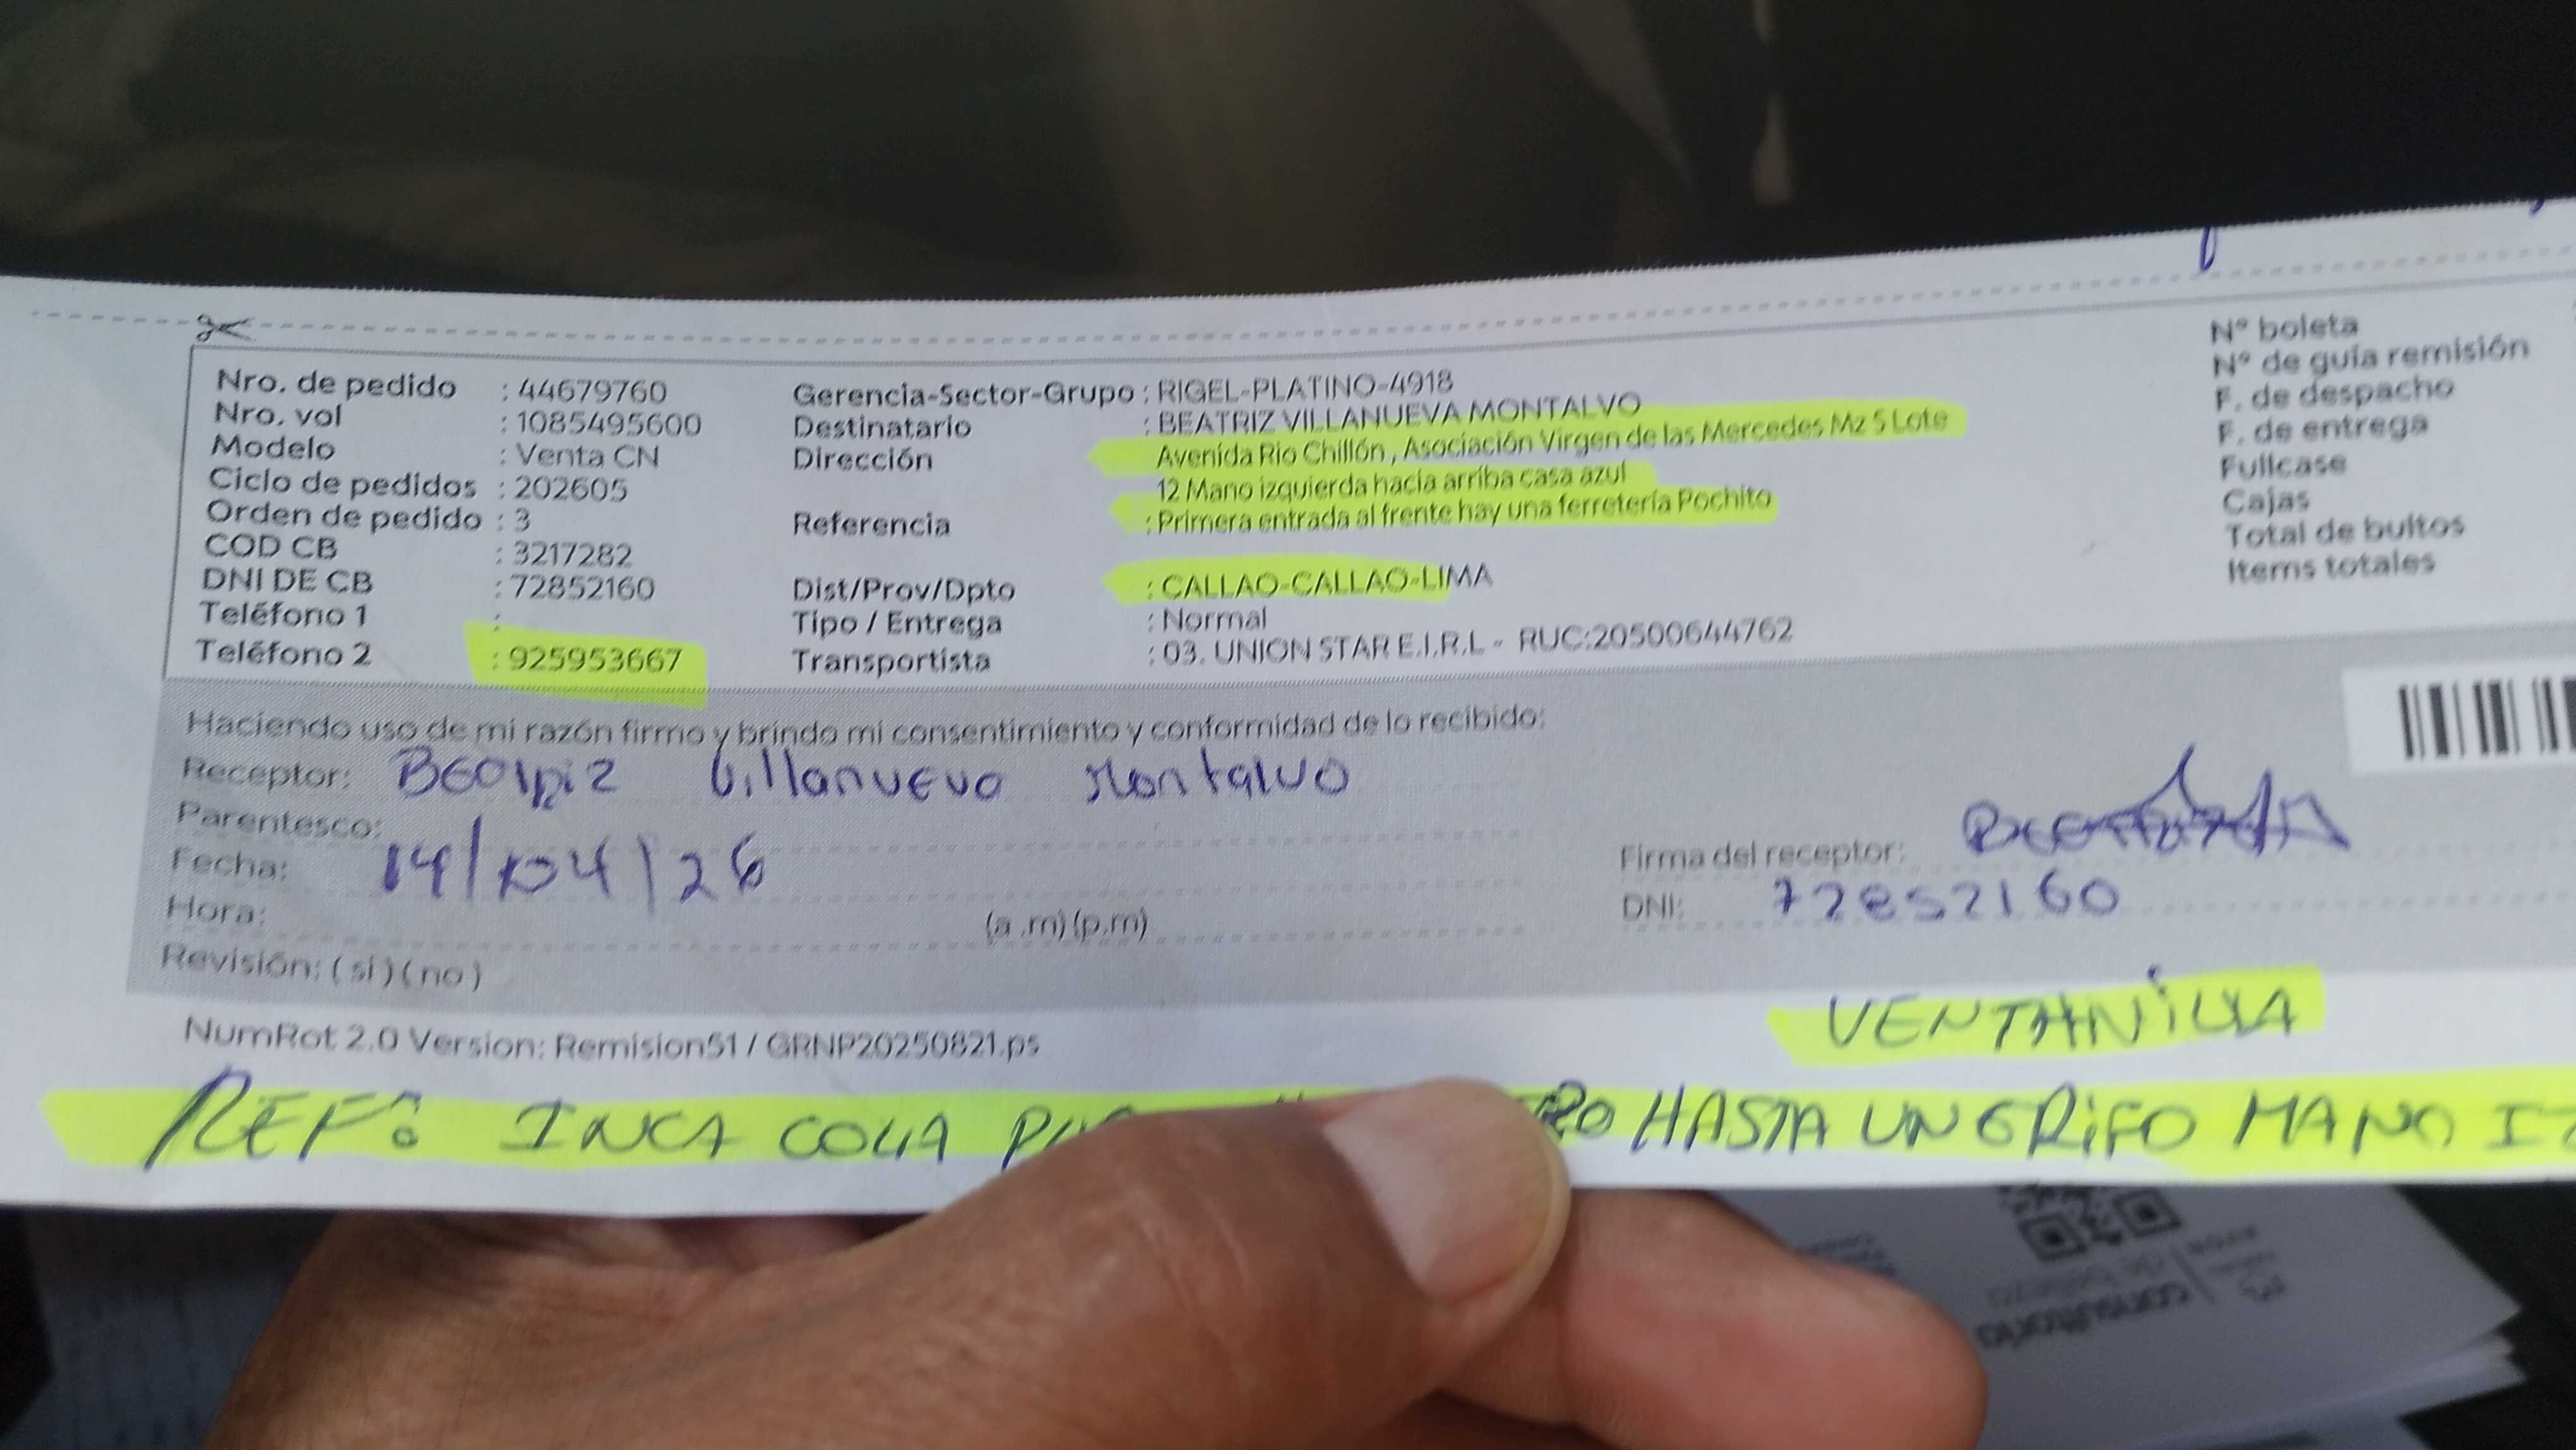 Nro. de pedido : 44679760
Nro. vol : 1085495600
Modelo : Venta CN
Ciclo de pedidos : 202605
Orden de pedido : 3
COD CB : 3217282
DNI DE CB : 72852160
Teléfono 1 :
Teléfono 2 : 925953667
Gerencia-Sector-Grupo : RIGEL-PLATINO-4918
Destinatario : BEATRIZ VILLANUEVA MONTALVO
Dirección Avenida Rio Chillón , Asociación Virgen de las Mercedes Mz 5 Lote
12 Mano izquierda hacia arriba casa azul
Referencia : Primera entrada al frente hay una ferretería Pochito
Dist/Prov/Dpto : CALLAO-CALLAO-LIMA
Tipo / Entrega : Normal
Transportista : 03. UNION STAR E.I.R.L - RUC:20500644762
N° boleta
N° de guía remisión
F. de despacho
F. de entrega
Fullcase
Cajas
Total de bultos
Items totales
Haciendo uso de mi razón firmo y brindo mi consentimiento y conformidad de lo recibido:
Receptor: Beatriz Villanueva Montalvo
Parentesco:
Fecha: 14/04/26
Hora: (a .m) (p.m)
Revisión: ( si ) ( no )
Firma del receptor:
DNI: 72852160
NumRot 2.0 Version: Remision51 / GRNP20250821.ps
VENTANiLLA
REF: INCA COLLA HASTA UN GRiFO MANO
consultorio